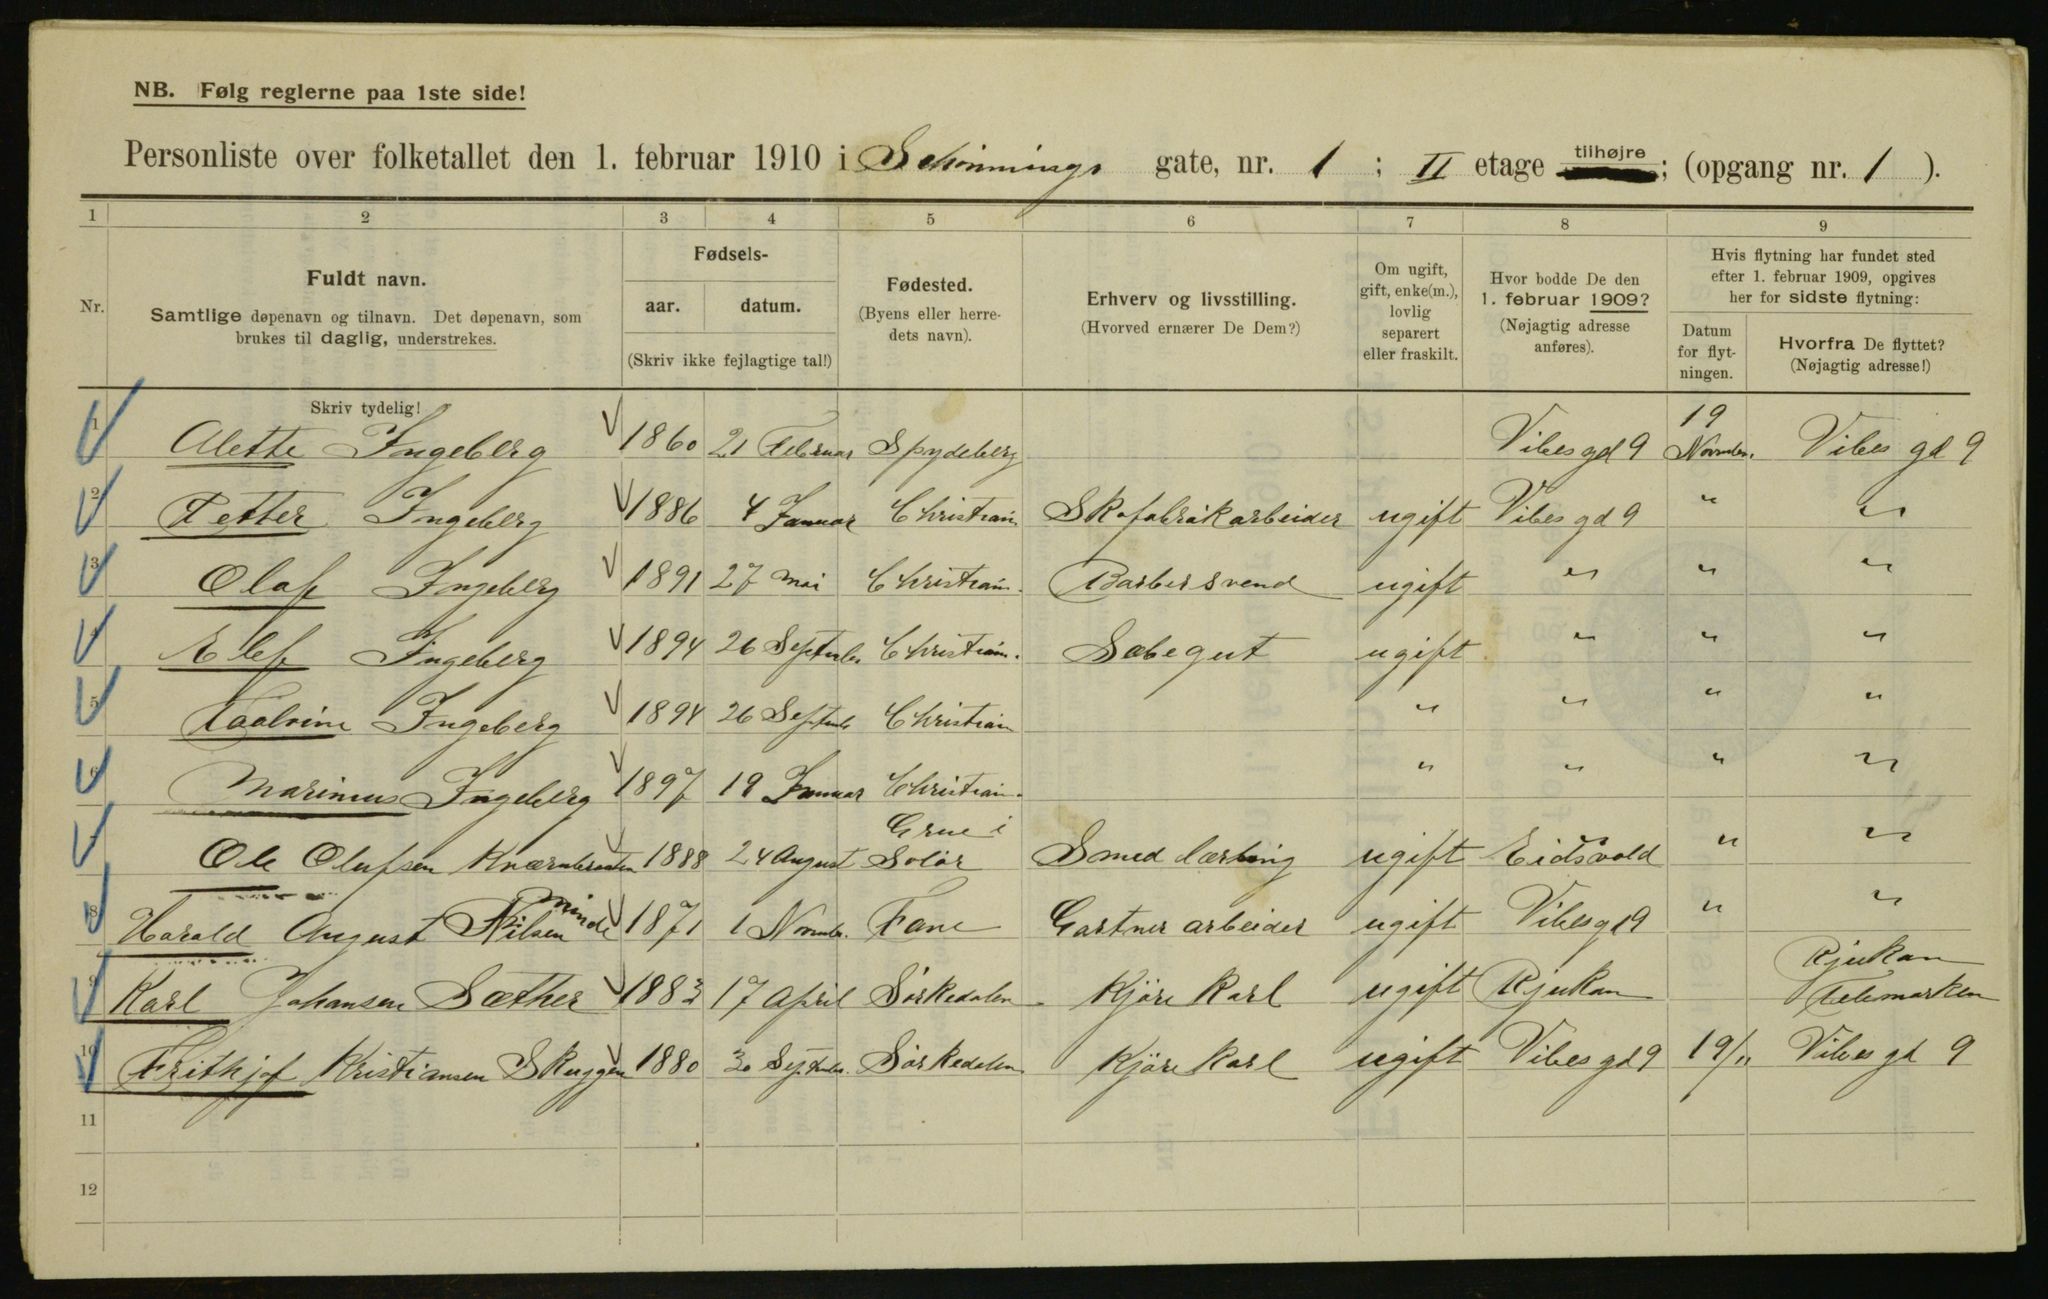 NB. Følg reglerne paa 1ste side!
Personliste over folketallet den 1. februar 1910 i Schønnings gate, nr. 1 ; II etage tilhøjre; (opgang nr. 1 ).
1 2 3 4 5 6 7 8 9
Nr.
Fuldt navn.
Samtlige døpenavn og tilnavn. Det døpenavn, som
brukes til daglig, understrekes.
Skriv tydelig!
Fødsels-
aar. datum.
(Skriv ikke fejlagtige tal!)
Fødested.
(Byens eller herre-
dets navn).
Erhverv og livsstilling.
(Hvorved ernærer De Dem?)
Om ugift,
gift, enke(m.),
lovlig
separert
eller fraskilt.
Hvor bodde De den
1. februar 1909?
(Nøjagtig adresse
anføres).
Hvis flytning har fundet sted
efter 1. februar 1909, opgives
her for sidste flytning:
Datum
for flyt-
ningen.
Hvorfra De flyttet?
(Nøjagtig adresse!)
1 Alette Ingeberg 1860 21 Februar Spydeberg Vibes gd 9 19 Novmber. Vibes gd 9
2 Petter Ingeberg 1886 4 Januar Christian. Skofabrikarbeider ugift Vibes gd 9 " "
3 Olaf Ingeberg 1891 27 mai Christian. Barbersvend ugift " " "
4 Elef Ingeberg 1894 26 Septmber Christian. Sabegut ugift " " "
5 Ingeberg 1894 26 Septmb Christian " " " "
6 Marinius Ingeberg 1897 19 Januar Christian. " " " "
7 Ole Olufsen Kværnbraaten 1888 24 August Grue i Solør Smed lærling ugift Eidsvold " "
8 Harald August Nilsen Minde 1871 1 Novmbr. Fane Gartner arbeider ugift Vibes gd 9 " "
9 Karl Johansen Sæther 1883 17 April Sørkedalen Kjøre Karl ugift Rjukan Rjukan Telemarken
10 Frithjof Kristiansen Skuggen 1880 30 Septmber. Sørkedalen Kjøre Karl ugift Vibes gd 9 19/11 Vibes gd 9
11
12